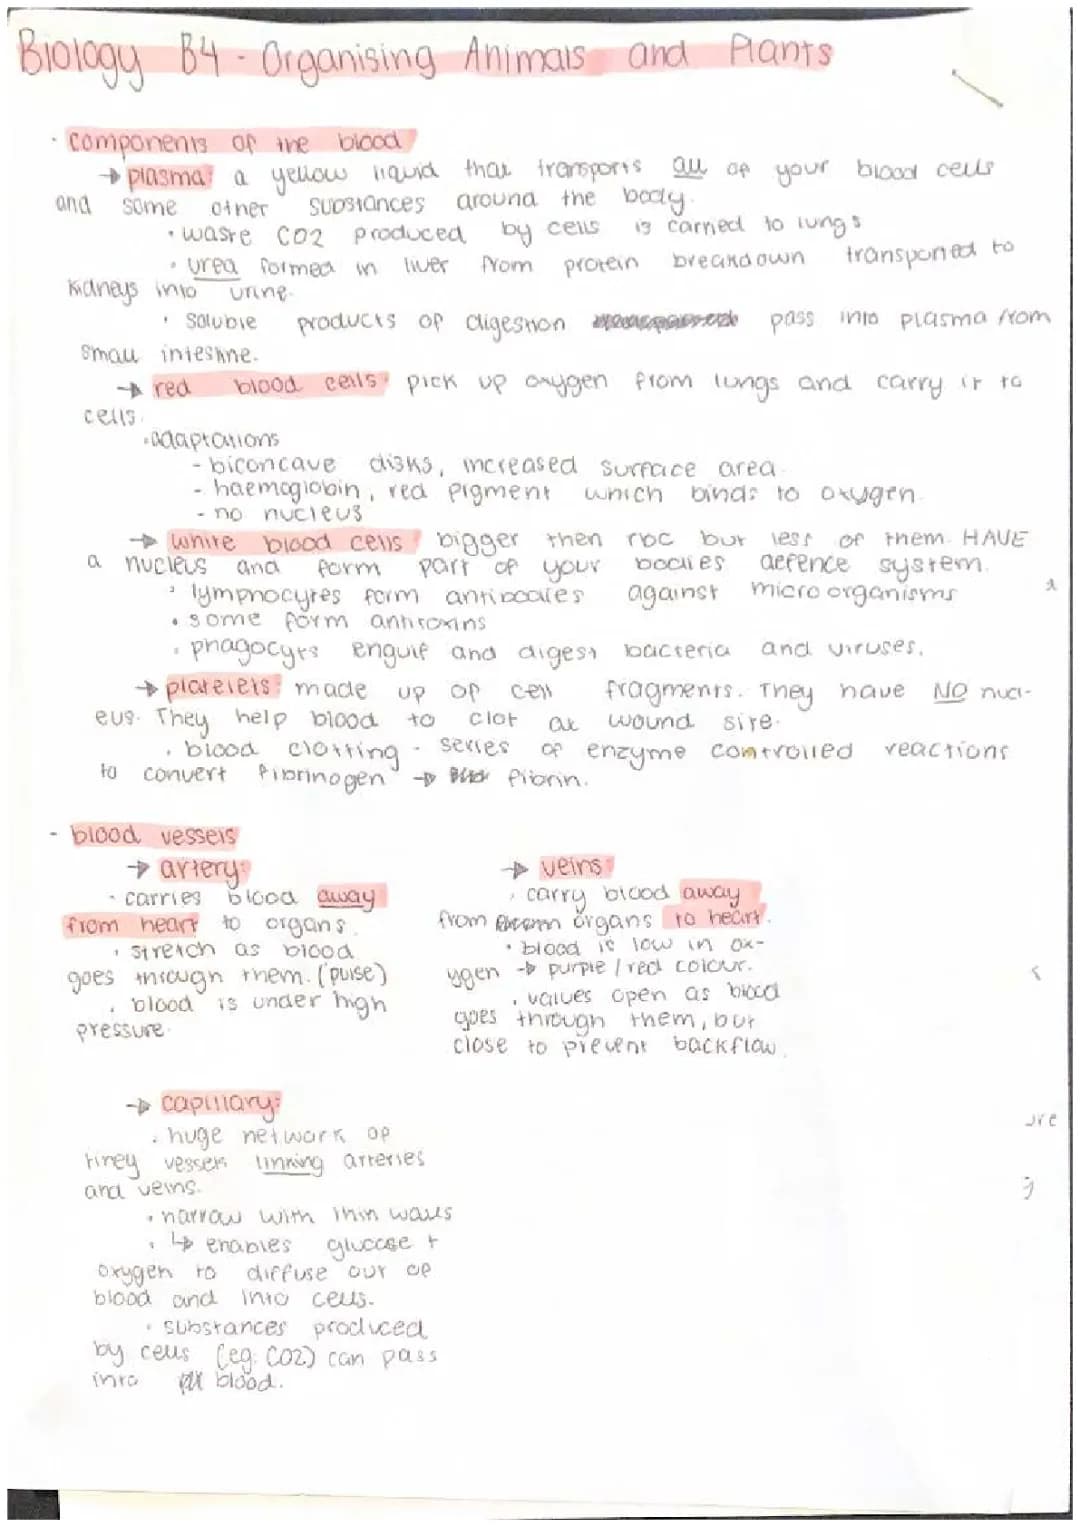 Biology B4 - Organising Animals and Plants
· components of the blood
→ plasma: a yellow liquid that transports all of your blood cells
and some other substances around the body.
· waste CO2 produced by cells is carried to lungs
· urea formed in liver from protein breakdown transported to
kidneys into urine.
· soluble products of digestion pass into plasma from
small intestine.
→ red blood cells: pick up oxygen from lungs and carry it to
cells.
· adaptations
- biconcave disks, increased surface area.
- haemoglobin, red pigment which binds to oxygen.
- no nucleus
→ white blood cells bigger then rbc but less of them. HAVE
a nucleus and form part of your bodies defence system.
· lymphocytes form antibodies against microorganisms
· some form antitoxins
· phagocyts engulf and digest bacteria and viruses.
→ platelets: made up of cell fragments. They have NO nucl-
eus. They help blood to clot at wound site.
· blood clotting - series of enzyme controlled reactions
to convert fibrinogen → fibrin.
- blood vessels
→ artery:
· carries blood away
from heart to organs.
· stretch as blood
goes through them. ('pulse)
· blood is under high
pressure.
→ veins:
· carry blood away
from organs to heart.
· blood is low in ox-
ygen → purple / red colour.
· valves open as blood
goes through them, but
close to prevent backflow.
→ capillary:
· huge network of
tiney vessels linking arteries
and veins.
· narrow with thin walls
· ↳ enables glucose +
oxygen to diffuse out of
blood and into cells.
· substances produced
by cells (eg: CO2) can pass
into blood.